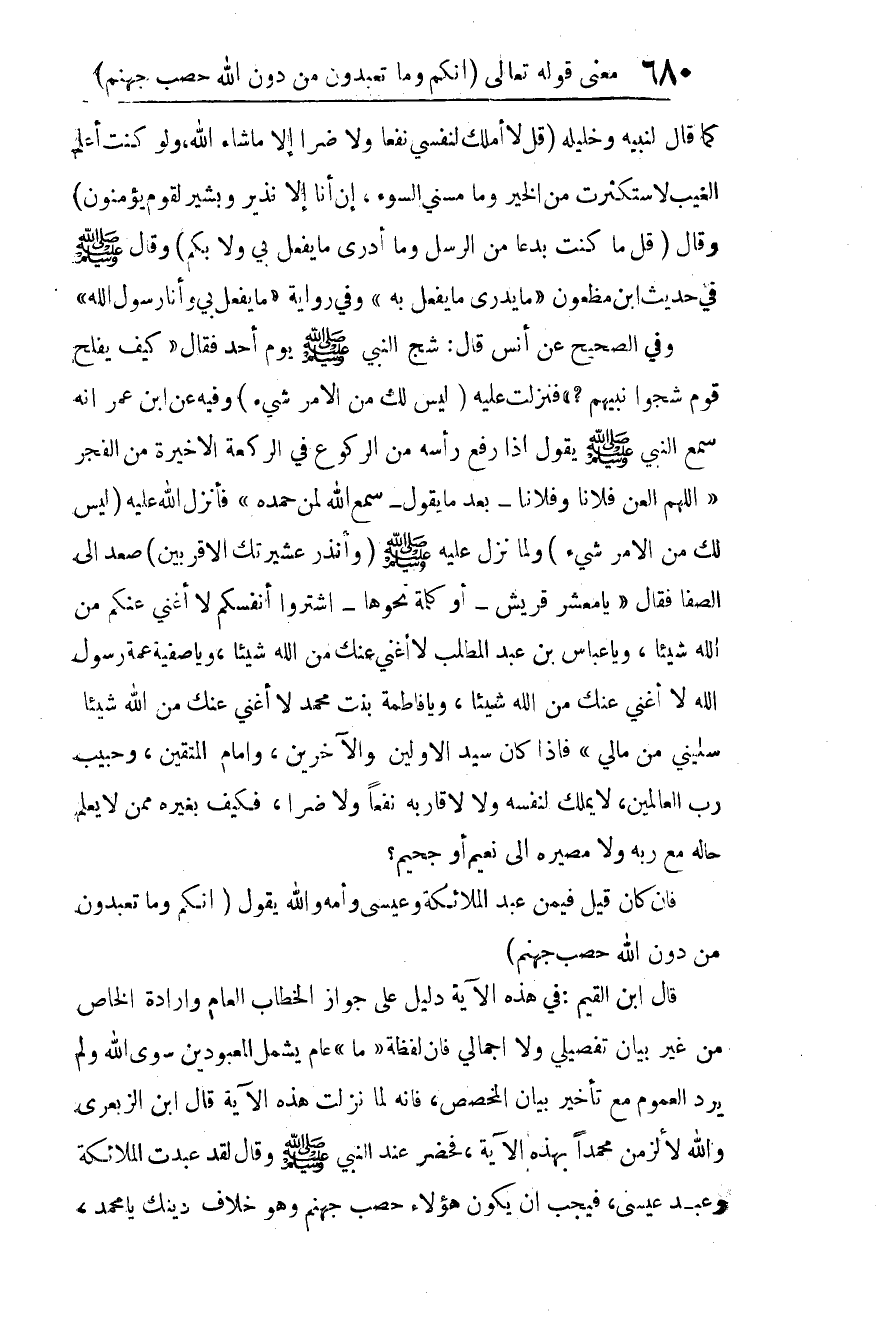 ٦٨٠ معنى قوله تعالى (انكم وما تعبدون من دون الله حصب جهنم)
كما قال لنبيه وخليله (قل لا أملك لنفسي نفعا ولا ضرا إلا ماشاء الله، ولو كنت أعلم
الغيب لاستكثرت من الخير وما مسني السوء ، إن أنا إلا نذير وبشير لقوم يؤمنون)
وقال ( قل ما كنت بدعا من الرسل وما أدرى مايفعل بي ولا بكم) وقال ﷺ
في حديث ابن مظعون «مايدرى مايفعل به » وفي رواية «مايفعل بي وأنا رسول الله»
وفي الصحيح عن أنس قال: شج النبي ﷺ يوم أحد فقال « كيف يفلح
قوم شجوا نبيهم ؟» فنزلت عليه ( ليس لك من الامر شيء ) وفيه عن ابن عمر انه
سمع النبي ﷺ يقول اذا رفع رأسه من الركوع في الركعة الاخيرة من الفجر
« اللهم العن فلانا وفلانا ـ بعد مايقول ـ سمع الله لمن حمده » فأنزل الله عليه (ليس
لك من الامر شيء ) ولما نزل عليه ﷺ ( وأنذر عشيرتك الاقربين) صعد الى
الصفا فقال « يامعشر قريش ـ أو كلمة نحوها ـ اشتروا أنفسكم لا أغني عنكم من
الله شيئا ، وياعباس بن عبد المطلب لا أغني عنك من الله شيئا ، وياصفية عمة رسول
الله لا أغني عنك من الله شيئا ، ويافاطمة بنت محمد لا أغني عنك من الله شيئا
سليني من مالي » فاذا كان سيد الاولين والآخرين ، وامام المتقين ، وحبيب
رب العالمين، لا يملك لنفسه ولا لاقاربه نفعاً ولا ضرا ، فكيف بغيره ممن لا يعلم
حاله مع ربه ولا مصيره الى نعيم أو جحيم؟
فان كان قيل فيمن عبد الملائكة وعيسى وأمه والله يقول ( انكم وما تعبدون
من دون الله حصب جهنم)
قال ابن القيم : في هذه الآية دليل على جواز الخطاب العام وارادة الخاص
من غير بيان تفصيلي ولا اجمالي فان لفظة « ما » عام يشمل المعبودين سوى الله ولم
يرد العموم مع تأخير بيان المخصص، فانه لما نزلت هذه الآية قال ابن الزبعرى
والله لألزمن محمداً بهذه الآية ، فحضر عند النبي ﷺ وقال لقد عبدت الملائكة
وعبد عيسى، فيجب ان يكون هؤلاء حصب جهنم وهو خلاف دينك يامحمد ،